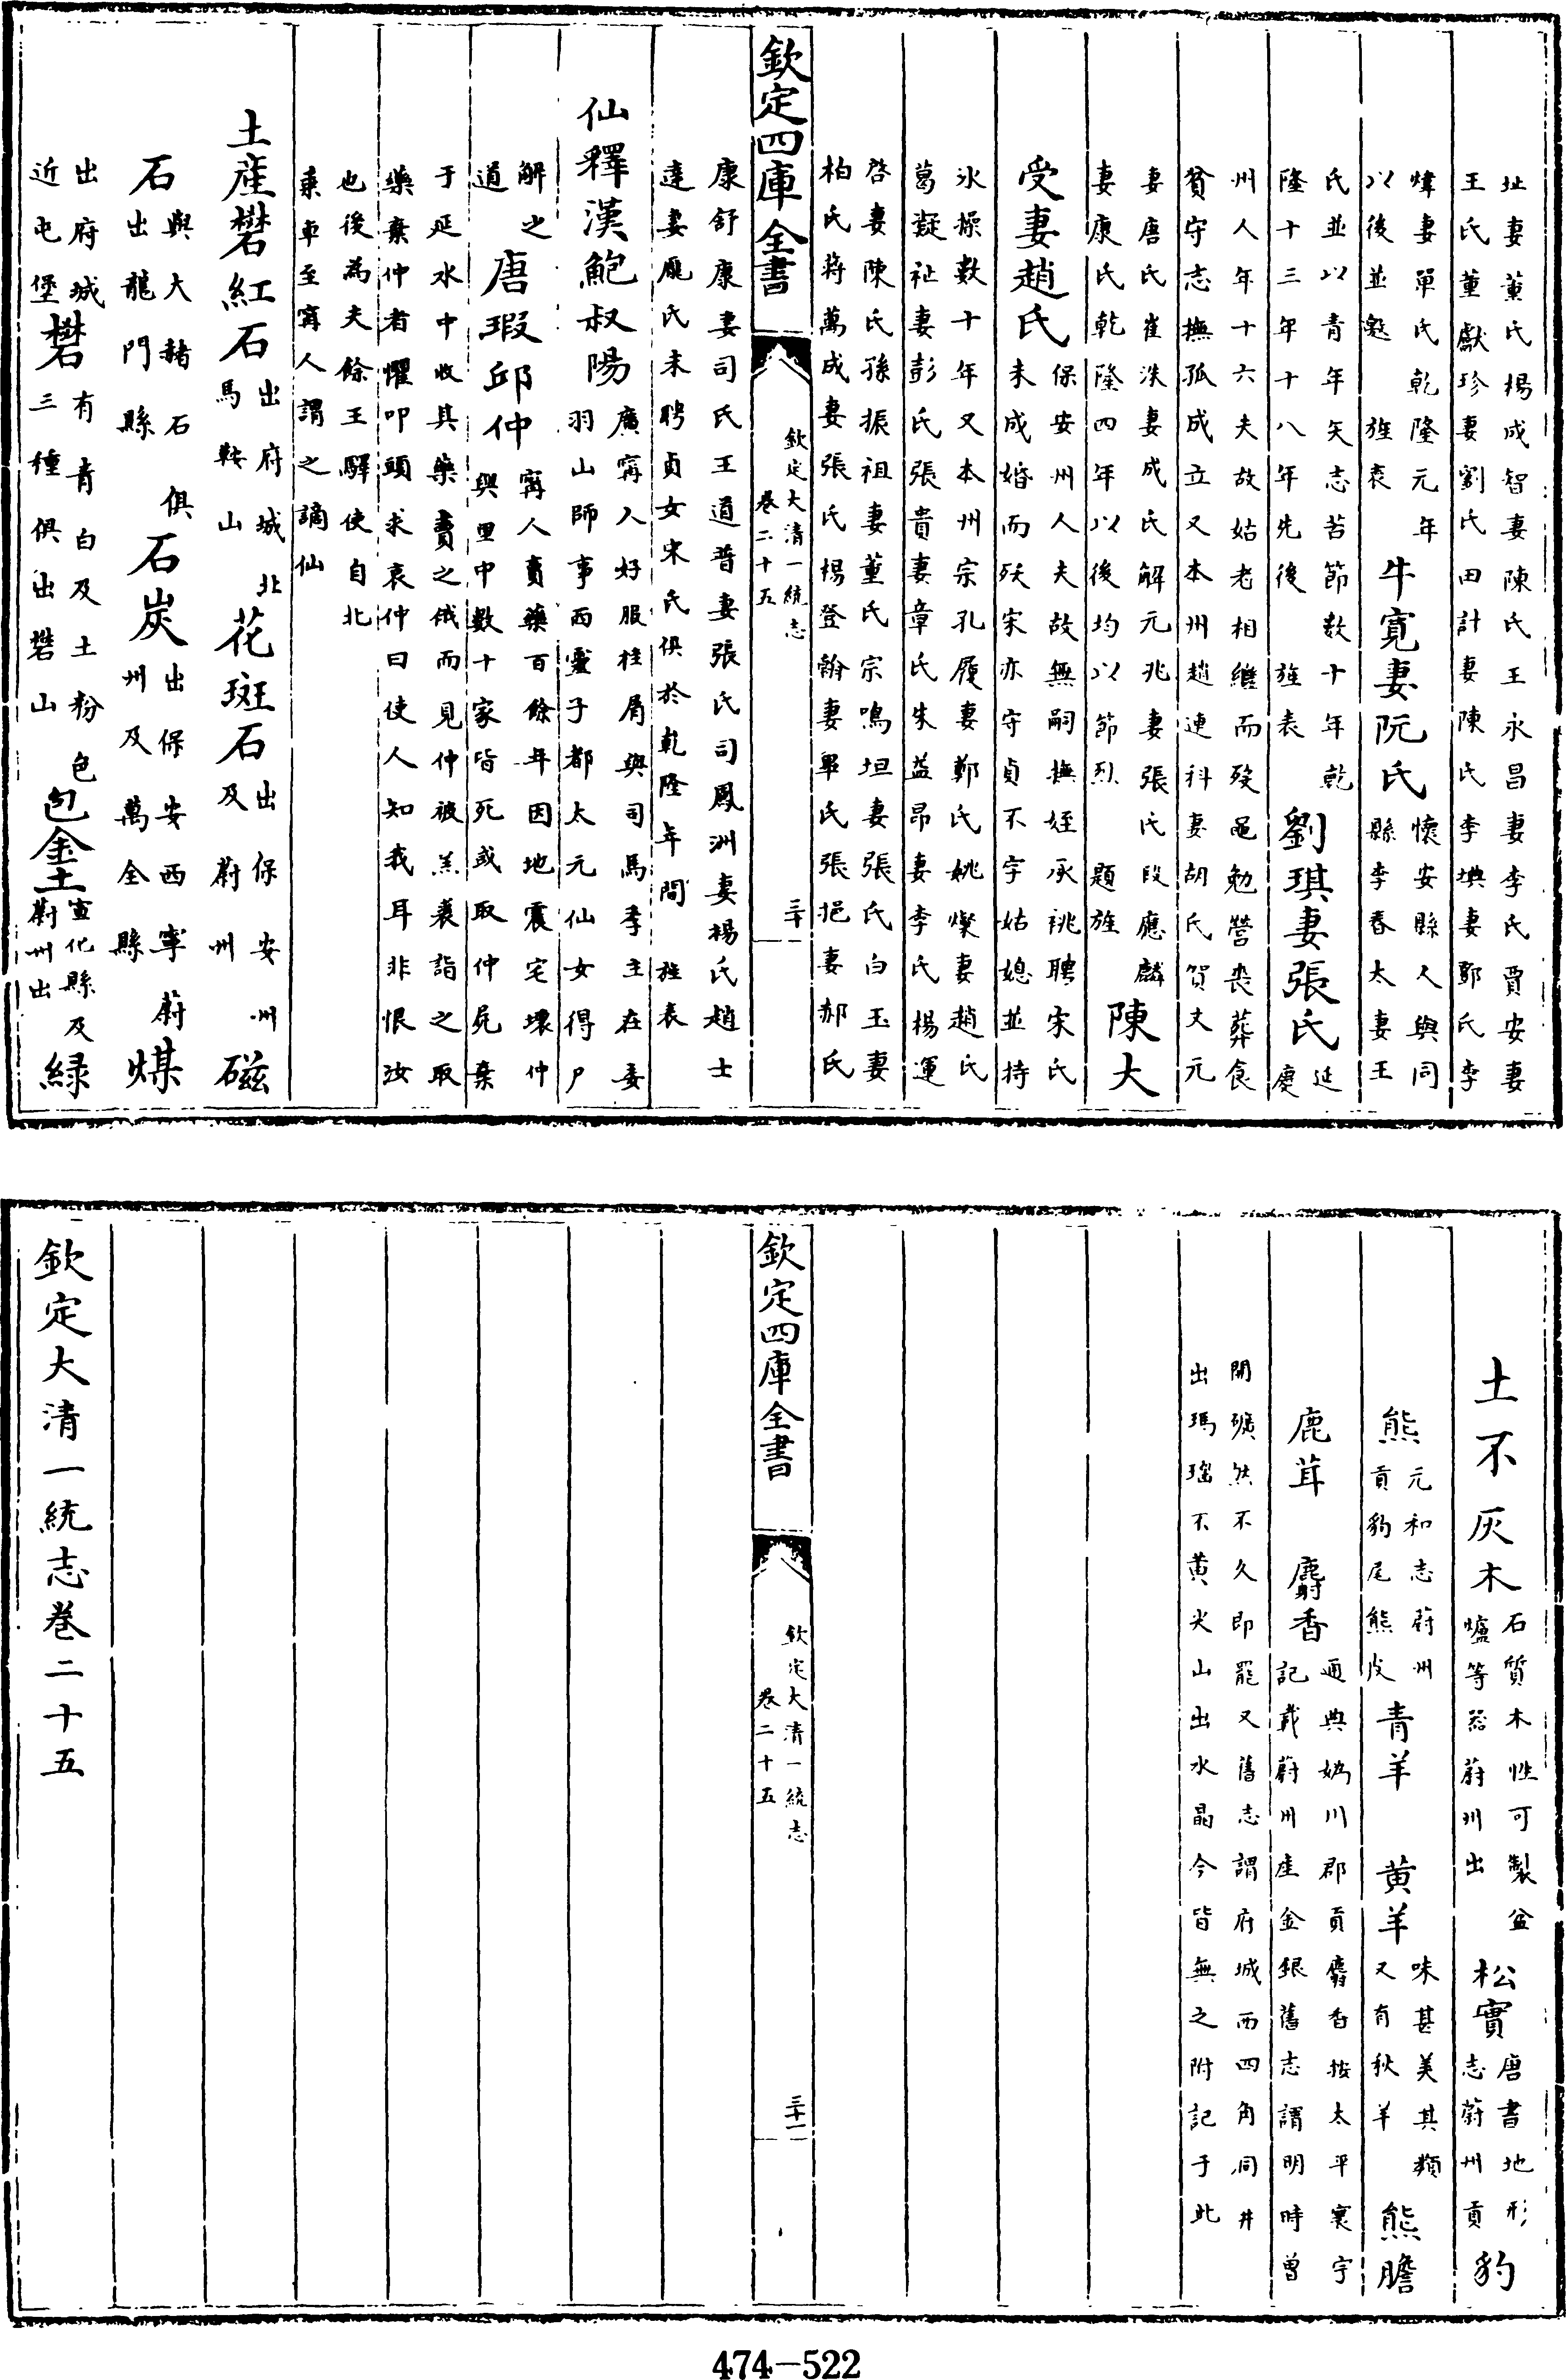 址妻董氏楊成智妻陳氏王永昌妻李氏賈安妻
王氏董獻珍妻劉氏田計妻陳氏李㙉妻鄭氏李
煒妻單氏乾隆元年
以後並邀　旌表
牛寛妻阮氏
懷安縣人與同
縣李春太妻王
氏並以青年矢志苦節數十年乾
隆十三年十八年先後　旌表
劉琪妻張氏
延
慶
州人年十六夫故姑老相繼而歿黽勉營喪葬食
貧守志撫孤成立又本州趙連科妻胡氏賀文元
妻唐氏崔洙妻成氏解元兆妻張氏段應麟
妻康氏乾隆四年以後均以節烈　題旌
陳大
受妻趙氏
保安州人夫故無嗣撫姪承祧聘宋氏
未成婚而殀宋亦守貞不字姑媳並持
氷操數十年又本州宗孔履妻鄭氏姚燦妻趙氏
葛凝祉妻彭氏張貴妻章氏朱益昂妻李氏楊運
啓妻陳氏孫振祖妻董氏宗鳴坦妻張氏白玉妻
柏氏蔣萬成妻張氏楊登翰妻畢氏張挹妻郝氏
欽定四庫全書
欽定大清一統志
卷二十五
三十
康舒康妻司氏王道普妻張氏司鳳洲妻楊氏趙士
達妻龐氏未聘貞女宋氏俱於乾隆年間　旌表
仙釋漢鮑叔陽
廣甯人好服桂屑與司馬季主在委
羽山師事西靈子都太元仙女得尸
解之
道
唐瑕邱仲
甯人賣藥百餘年因地震宅壞仲
與里中數十家皆死或取仲屍棄
于延水中收其藥賣之俄而見仲被羔裘詣之取
藥棄仲者懼叩頭求哀仲曰使人知我耳非恨汝
也後為夫餘王驛使自北
乘車至甯人謂之謫仙
土産礬紅石
出府城北
馬鞍山
花斑石
出保安州
及蔚州
磁
石
與大赭石俱
出龍門縣
石炭
出保安西寧蔚
州及萬全縣
煤
出府城
近屯堡
礬
有青白及土粉色
三種俱出礬山
包金土
宣化縣及
蔚州出
緑
土不灰木
石質木性可製盆
爐等器蔚州出
松實
唐書地形
志蔚州貢
豹
熊
元和志蔚州
貢豹尾熊皮
青羊　黄羊
味甚美其類
又有秋羊
熊膽
鹿茸　麝香
通典媯川郡貢麝香按太平寰宇
記載蔚州産金銀舊志謂明時曽
開礦然不久即罷又舊志謂府城西四角同井
出瑪瑙不黄尖山出水晶今皆無之附記于此
欽定四庫全書
欽定大清一統志
卷二十五
三十一
欽定大清一統志卷二十五
474-522